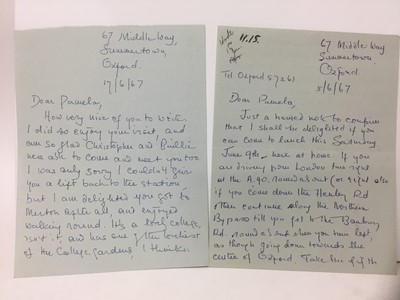 67 Middle Way,
Summertown
Oxford.
17/6/67
Dear Pamela,
How very nice of you to write.
I did so enjoy your visit, and
am so glad Christopher and
were able to come and meet you too.
I was only sorry I couldn't give
you a lift back to the station,
but I am delighted you got to
Merton after all, and enjoyed
walking round. It's a lovely college,
isn't it, and has one of the loveliest
of the College gardens, I think.
11.15.
67 Middle Way
Summertown
Tel. Oxford 57261
Oxford
5/6/67
Dear Pamela,
Just a hurried note to confirm
that I shall be delighted if you
can come to lunch this Saturday
June 9th – here at home. If you
are driving from London turn right
at the A.40. roundabout (or right also
if you come down the Henley Rd
Then continue along the Northern
Bypass till you get to the Banbury
Rd. roundabout when you turn left,
as though going down towards the
centre of Oxford. Take the